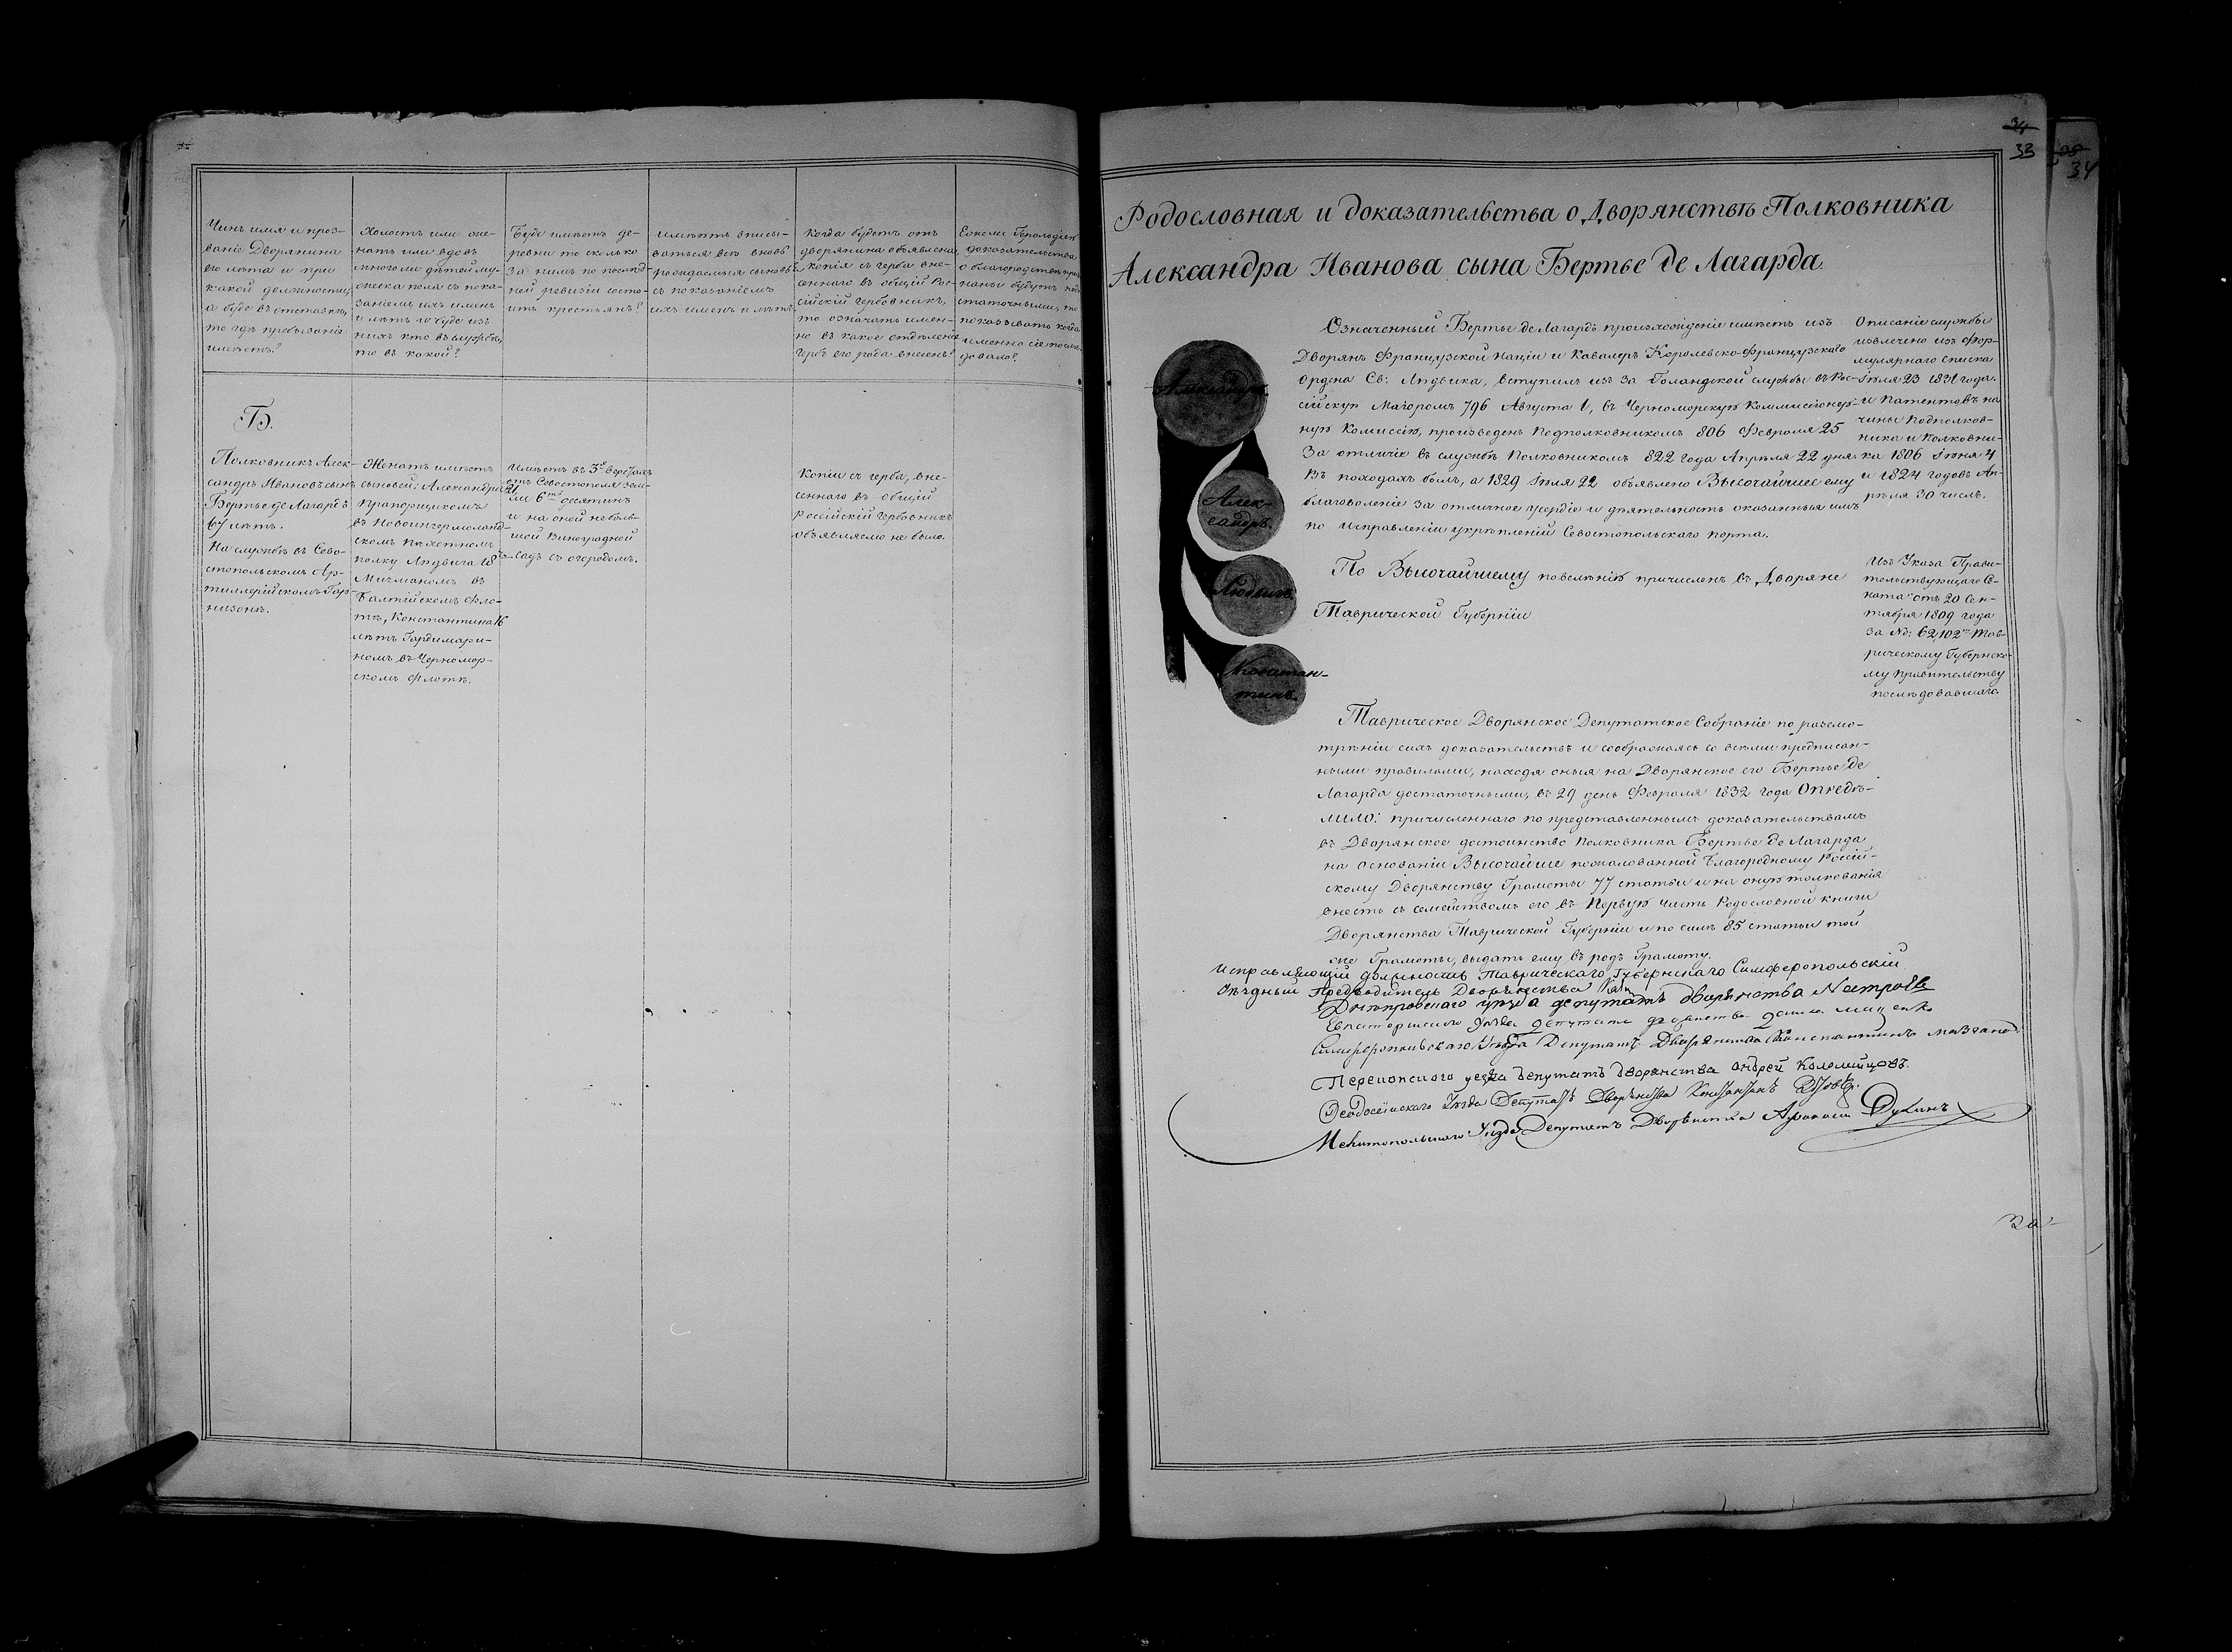 Чинъ имя и проз-
ваніе Дворянина
его лѣта и при
какой должности,
а буде въ отставкѣ,
то гдѣ пребываніе
имѣетъ?
Холостъ или же-
натъ или вдовъ
много ли дѣтей му-
жеска пола съ пока-
заніемъ ихъ именъ
и лѣтъ и буде изъ
нихъ кто въ службѣ,
то въ какой?
Буде имѣетъ де-
ревни то сколько
за нимъ по послѣд-
ней ревизіи состо-
итъ крестьянъ?
имѣютъ вписы-
ваться всѣ вновь
рождаемыя сыновья
съ показаніемъ
ихъ именъ и лѣтъ.
Когда будетъ отъ
дворянина объявлена
копія съ герба вне-
сеннаго въ общій Рос-
сійскій Гербовникъ,
то означать имен-
но въ какое отдѣленіе
гербъ его рода внесенъ?
Ежели Герольдіею
доказательства
о благородствѣ приз-
наны будутъ недо-
статочными, то
показывать когда
именно сіе послѣ-
довало?
Б.
Полковникъ Алек-
сандръ Ивановъ сынъ
Бертье де Лагардъ
67 лѣтъ.
На службѣ въ Сево-
стопольскомъ Ар-
тиллерійскомъ Гар-
низонѣ.
Женатъ имѣетъ
сыновей: Александра 21
Прапорщикомъ
въ Новоингермоланд-
скомъ Пѣхотномъ
полку Людвига 18
Мичманомъ въ
Балтійскомъ Фло-
тѣ, Константина 16
лѣтъ Гардимари-
номъ въ Черномор-
скомъ Флотѣ.
Имѣетъ въ 3хъ верстахъ
отъ Севостополя зем-
ли 6ть десятинъ
и на оной неболь-
шой Виноградной
садъ съ огородомъ.
Копіи съ герба, вне-
сеннаго въ общій
Россійскій Гербовникъ
объявляемо не было.
34
33
34
Родословная и доказательства о Дворянствѣ Полковника
Александра Иванова сына Бертье де Лагарда.
Александръ.
Алек-
сандръ.
Людвигъ.
Констан-
тинъ.
Означенный Бертье де Лагардъ произхожденіе имѣетъ изъ
Дворянъ Французской Націи и Кавалеръ Королевско-Французскаго
ордена Св: Людвика, вступилъ изъ за Голандской службы въ Рос-
сійскую Маіоромъ 796 Августа 1, въ Черноморскую Коммисіонер-
ную Комиссію, произведенъ Подполковникомъ 806 Февраля 25
За отличіе въ службѣ Полковникомъ 822 года Апрѣля 22 дня.
Въ походахъ былъ, а 1829 Іюля 22 объявлено Высочайшее ему
благоволеніе за отличное усердіе и дѣятельность оказанныя имъ
по исправленіи укрѣпленій Севостопольскаго порта.
Описаніе службы
извлечено изъ Фор-
мулярнаго списка
Іюля 23 1831 года.
и Патентовъ на
чины Подполков-
ника и Полковни-
ка 1806 Іюня 4
и 1824 годовъ Ап-
рѣля 30 числъ.
По Высочайшему повелѣнію причисленъ въ Дворяне
Таврической Губерніи
Изъ Указа Прави-
тельствующаго Се-
ната отъ 20 Сен-
тября 1809 года
за №: 62,102мъ Тав-
рическому Губернско-
му Правительству
послѣдовавшаго.
Таврическое Дворянское Депутатское Собраніе по разсмо-
трѣніи сихъ доказательствъ и сообразжаясь со всѣми предписан-
ными правилами, находя оныя на Дворянское его Бертье де
Лагарда достаточными, въ 29 день Февраля 1832 года Опредѣ-
лило: причисленнаго по представленнымъ доказательствамъ
въ Дворянское достоинство Полковника Бертье де Лагарда
на основаніи Высочайше пожалованной Благородному Россій-
скому Дворянству Грамоты 77 статьи и на оную толкованія
внесть съ семействомъ его въ Первую часть Родословной книги
Дворянства Таврической Губерніи и по силѣ 85 статьи той
же Грамоты, выдать ему въ родъ Грамоту.
Исправляющій должность Таврическаго Губернскаго Симферопольскій
Уѣздный Предводитель Дворянства
Днѣпровскаго уѣзда депутатъ дворянства
Евпаторійскаго Уѣзда депутатъ дворянства
Симферопольскаго Уѣзда Депутатъ Дворянства Константинъ
Перекопскаго уезда Депутатъ дворянства Андрей Коломийцовъ.
Ѳеодосійскаго Уѣзда Депутатъ Дворянства
Мелитопольскаго Уѣзда Депутатъ Дворянства